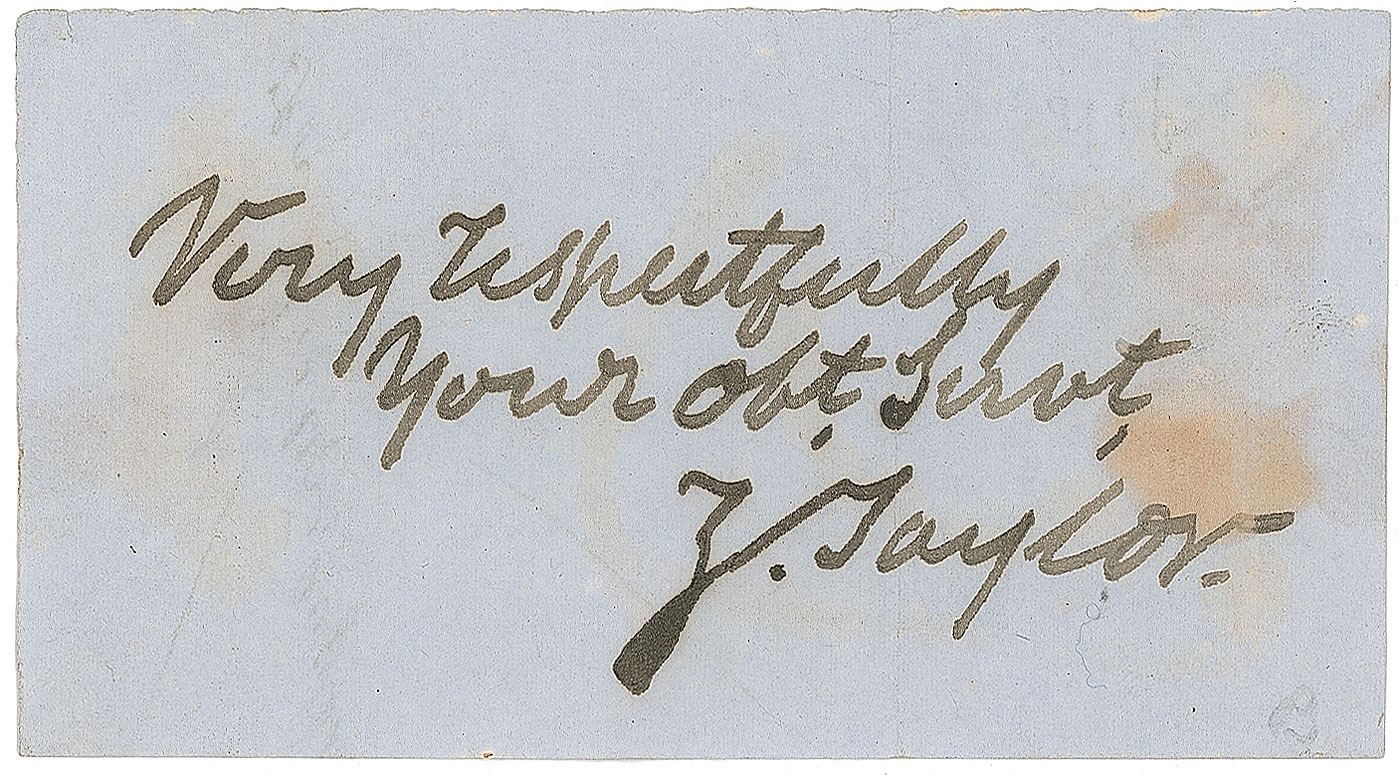 Very respectfully
Your obt, Servt,
Z. Taylor.